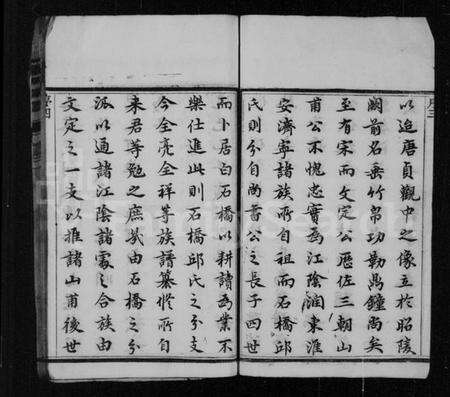 以迨唐貞觀中之像立於昭陵
闕前名垂竹帛功勒鼎鐘尚矣
至有宋而文定公歷佐三朝山
甫公不愧忠實為江陰潤東淮
安濟寧諸族所自祖而石橋邱
氏則分自尚書公之長子四世
而卜居白石橋以耕讀為業不
樂仕進此則石橋邱氏之分支
今全亮全祥等族譜纂修所自
來君等勉之庶幾由石橋之分
派以通諸江陰諸處之合族由
文定之一支以推諸山甫後世